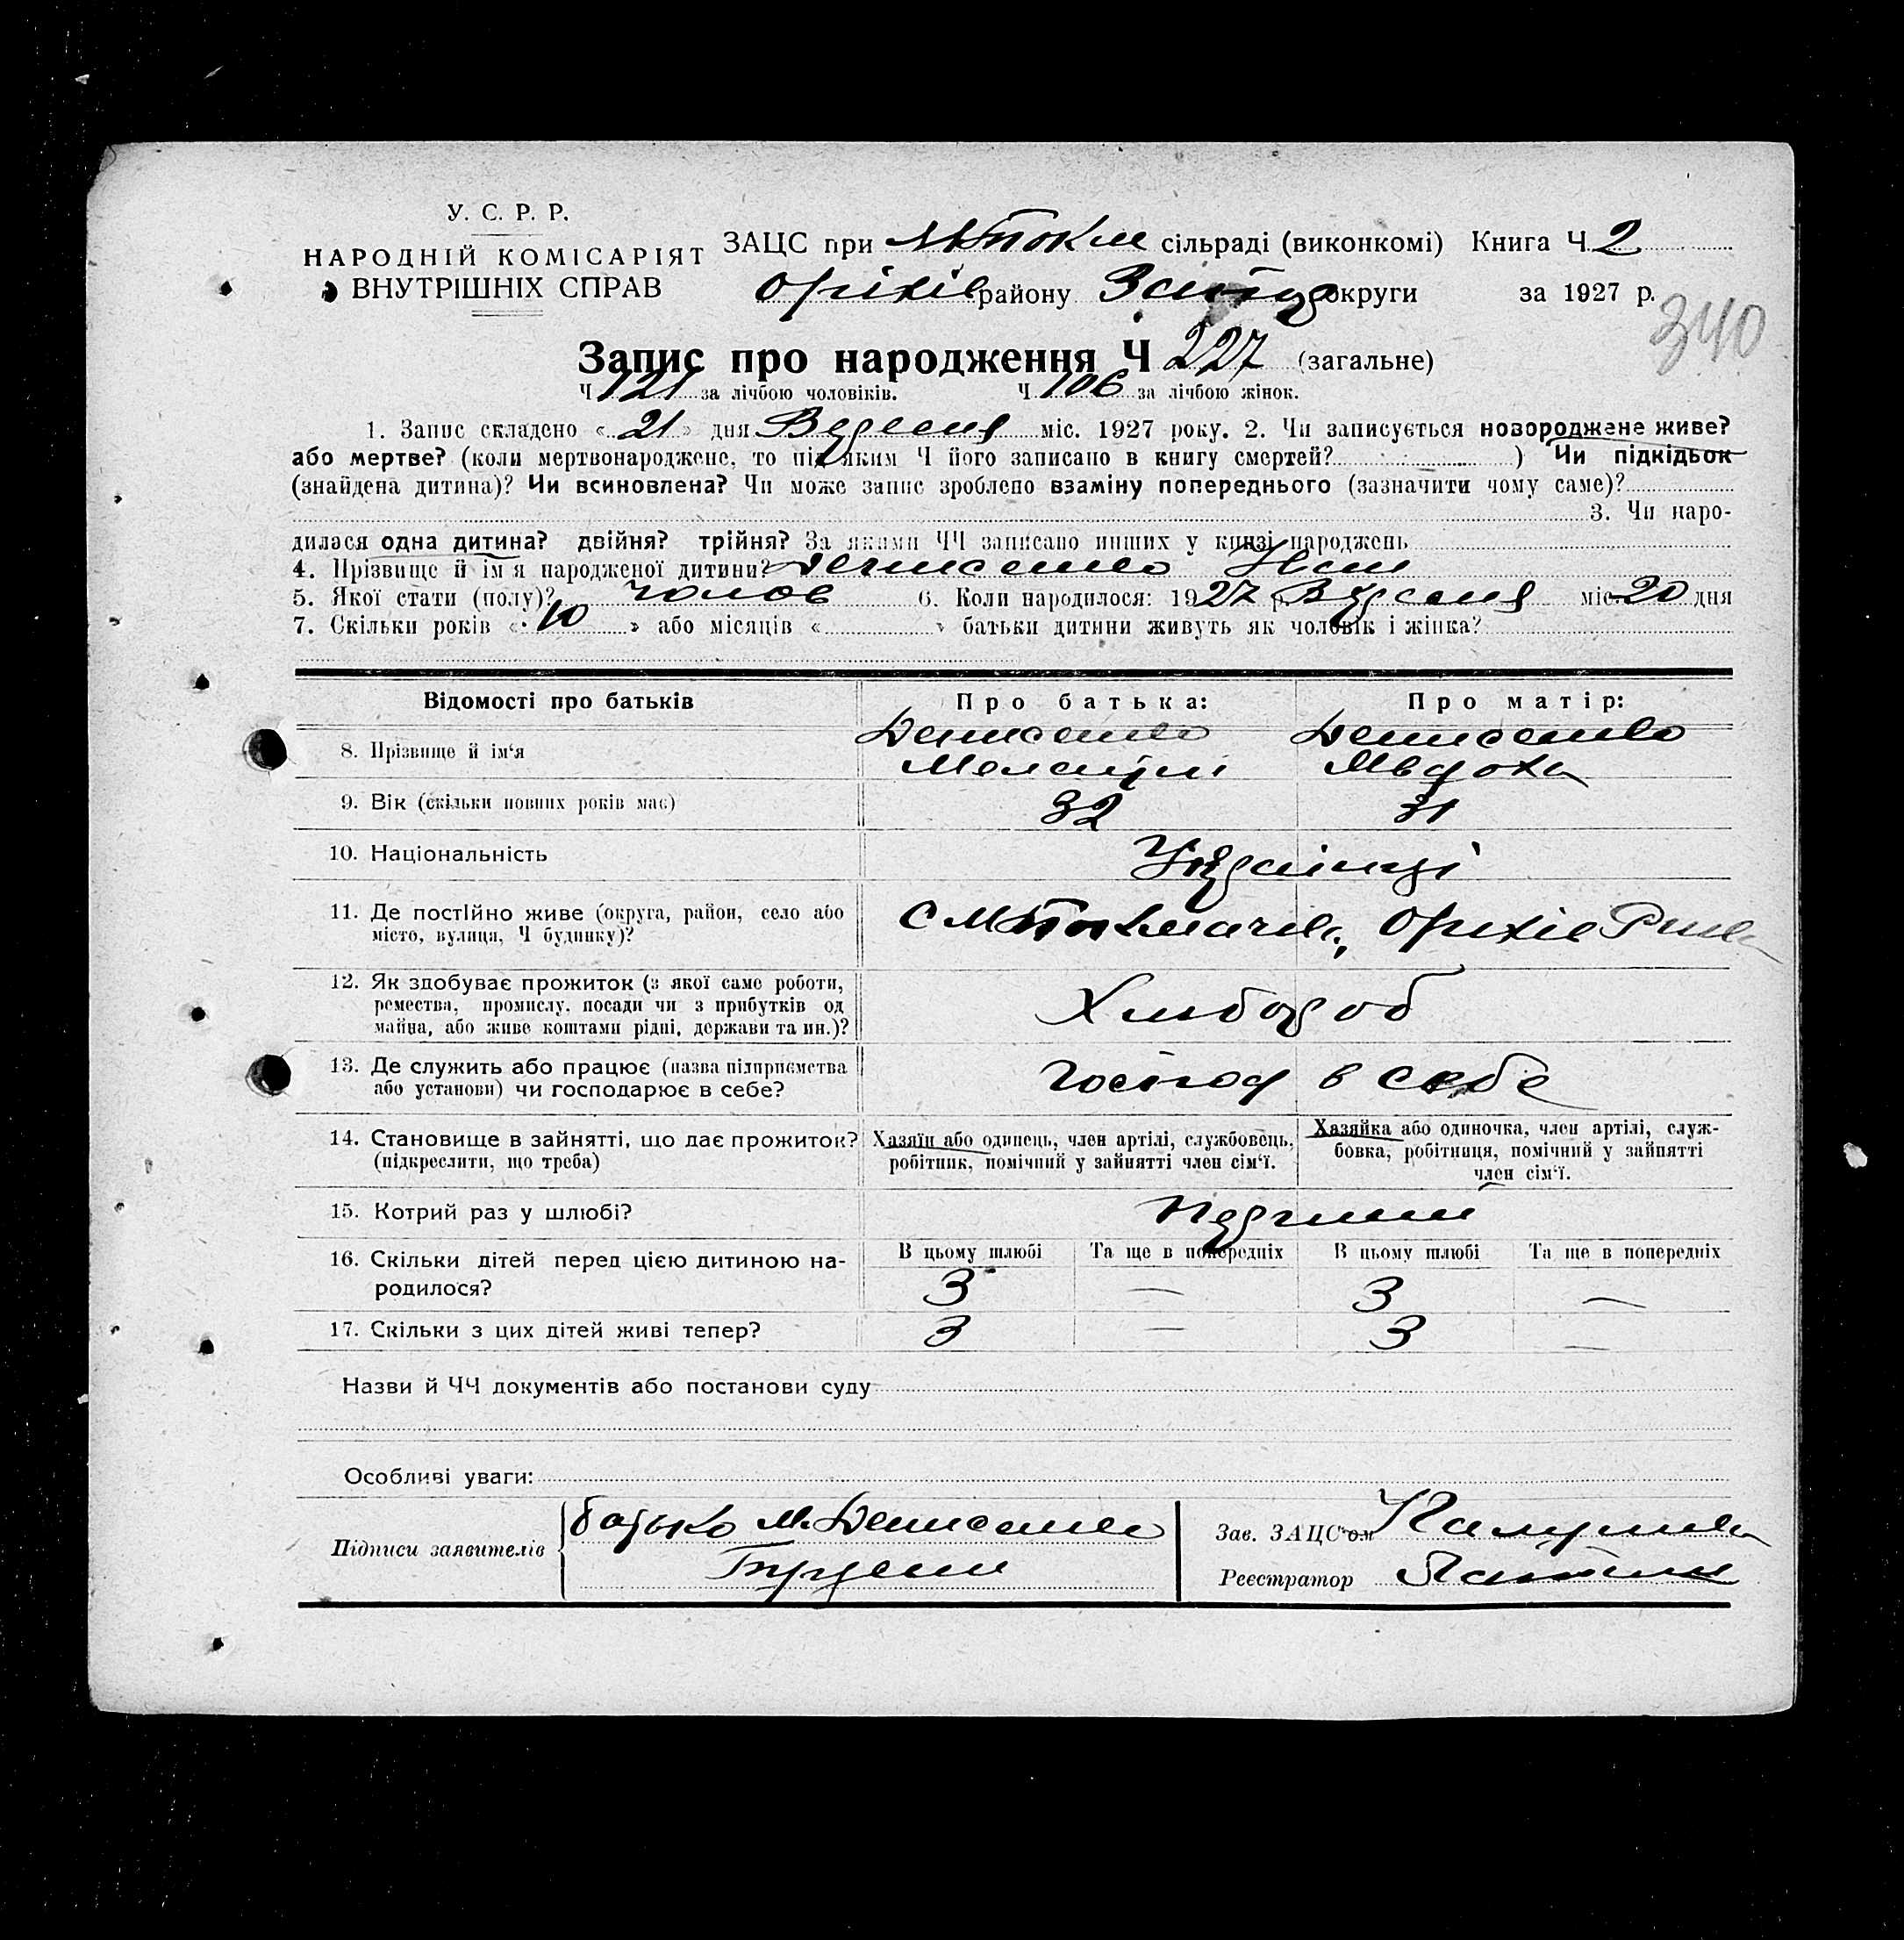 У. С. Р. Р.
НАРОДНІЙ КОМІСАРІЯТ
ВНУТРІШНІХ СПРАВ
ЗАЦС при М Токм сільраді (виконкомі) Книга Ч. 2
Оріхів району Запор округи за 1927 р.
340
Запис про народження Ч 227 (загальне)
Ч 121 за лічбою чоловіків. Ч 106 за лічбою жінок.
1. Запис складено « 21 » дня Вересня міс. 1927 року. 2. Чи записується новороджене живе?
або мертве? (коли мертвонароджене, то під яким Ч його записано в книгу смертей? ) Чи підкідьок
(знайдена дитина)? Чи всиновлена? Чи може запис зроблено взаміну попереднього (зазначити чому саме)?
3. Чи наро-
дилася одна дитина? двійня? трійня? За якими ЧЧ записано инших у книзі народжень
4. Прізвище й ім'я народженої дитини? Денисенко
5. Якої стати (полу)? чолов 6. Коли народилося: 1927 р. Вересня міс. 20 дня
7. Скільки років « 10 » або місяців « » батьки дитини живуть як чоловік і жінка?
Відомості про батьків Про батька: Про матір:
8. Прізвище й ім'я Денисенко Денисенко
Явдоха
9. Вік (скільки повних років має) 32 31
10. Національність Українці
11. Де постійно живе (округа, район, село або
місто, вулиця, Ч будинку)? Оріхів
12. Як здобуває прожиток (з якої саме роботи,
ремества, промислу, посади чи з прибутків од
майна, або живе коштами рідні, держави та ин.)? Хлібороб
13. Де служить або працює (назва підприємства
або установи) чи господарює в себе? господ в себе
14. Становище в зайнятті, що дає прожиток?
(підкреслити, що треба)
Хазяїн або одинець, член артілі, службовець,
робітник, помічний у зайнятті член сім'ї.
Хазяйка або одиночка, член артілі, служ-
бовка, робітниця, помічний у зайнятті
член сім'ї.
15. Котрий раз у шлюбі? Перший
16. Скільки дітей перед цією дитиною на-
родилося?
В цьому шлюбі Та ще в попередніх В цьому шлюбі Та ще в попередніх
3 — 3 —
17. Скільки з цих дітей живі тепер? 3 — 3 —
Назви й ЧЧ документів або постанови суду
Особливі уваги:
Підписи заявителів батько М. Денисенко
Зав. ЗАЦС'ом
Реєстратор